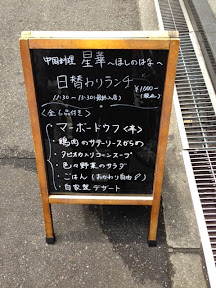 中国料理 星華 〜ほしのはな〜
日替わりランチ
11:30～13:30(最終入店)
¥1000-
(税込)
<全6品付き>
マーボードウフ<辛>
・鶏肉のサテーソースがらめ
・タピオカ入りコーンスープ
・色々野菜のサラダ
・ごはん(おかわり自由)
・自家製デザート